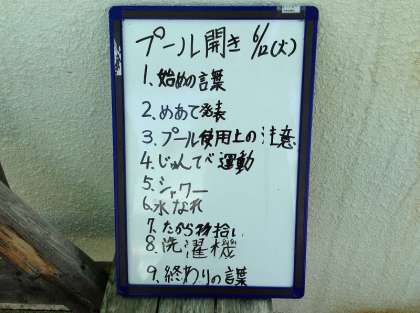 プール開き 6/12(火)
1. 始めの言葉
2. めあて発表
3. プール使用上の注意
4. じゅんび運動
5. シャワー
6. 水なれ
7. たから物拾い
8. 洗濯機
9. 終わりの言葉